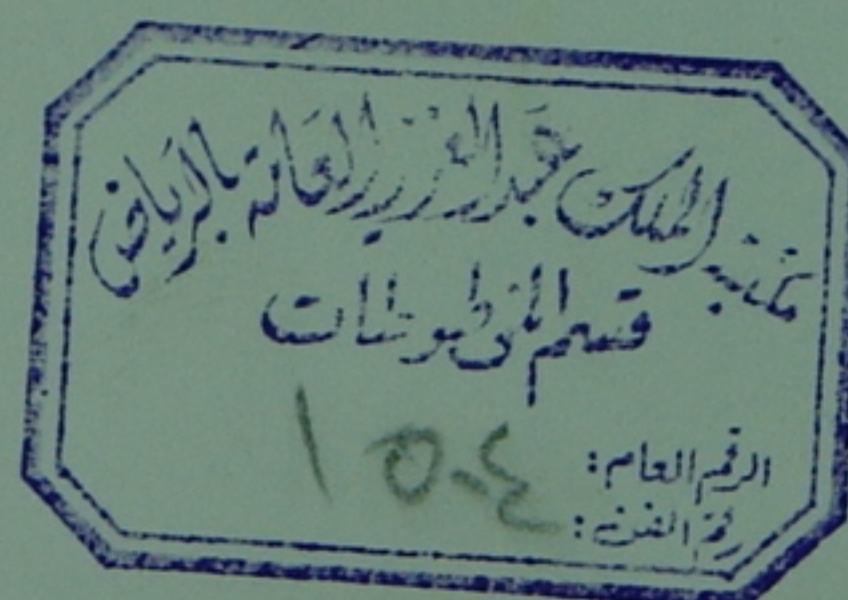 مكتبة الملك عبد العزيز العامة بالرياض
قسم المخطوطات
الرقم العام: ١٥٠٤
رقم الفن: